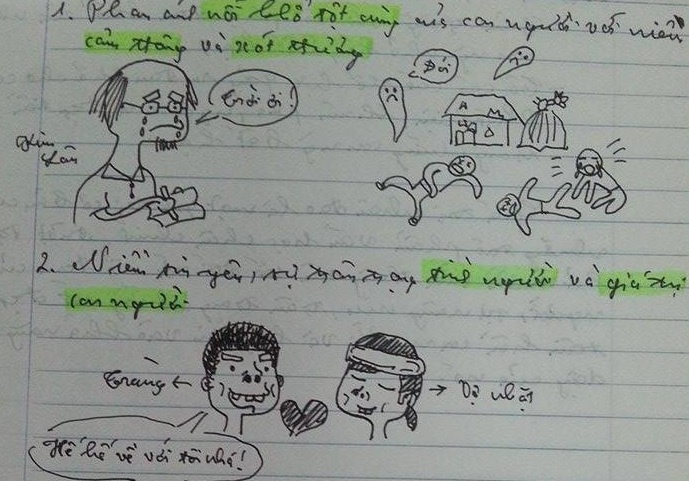 1. Phản ánh nỗi khổ tột cùng của con người với niềm
cảm thông và xót thương
Trời ơi!
Đói
A
Kim
Lân
2. Niềm tin yêu, sự trân trọng tình người và giá trị
con người
Tràng
Vợ nhặt
Hê hê về với tôi nhá!